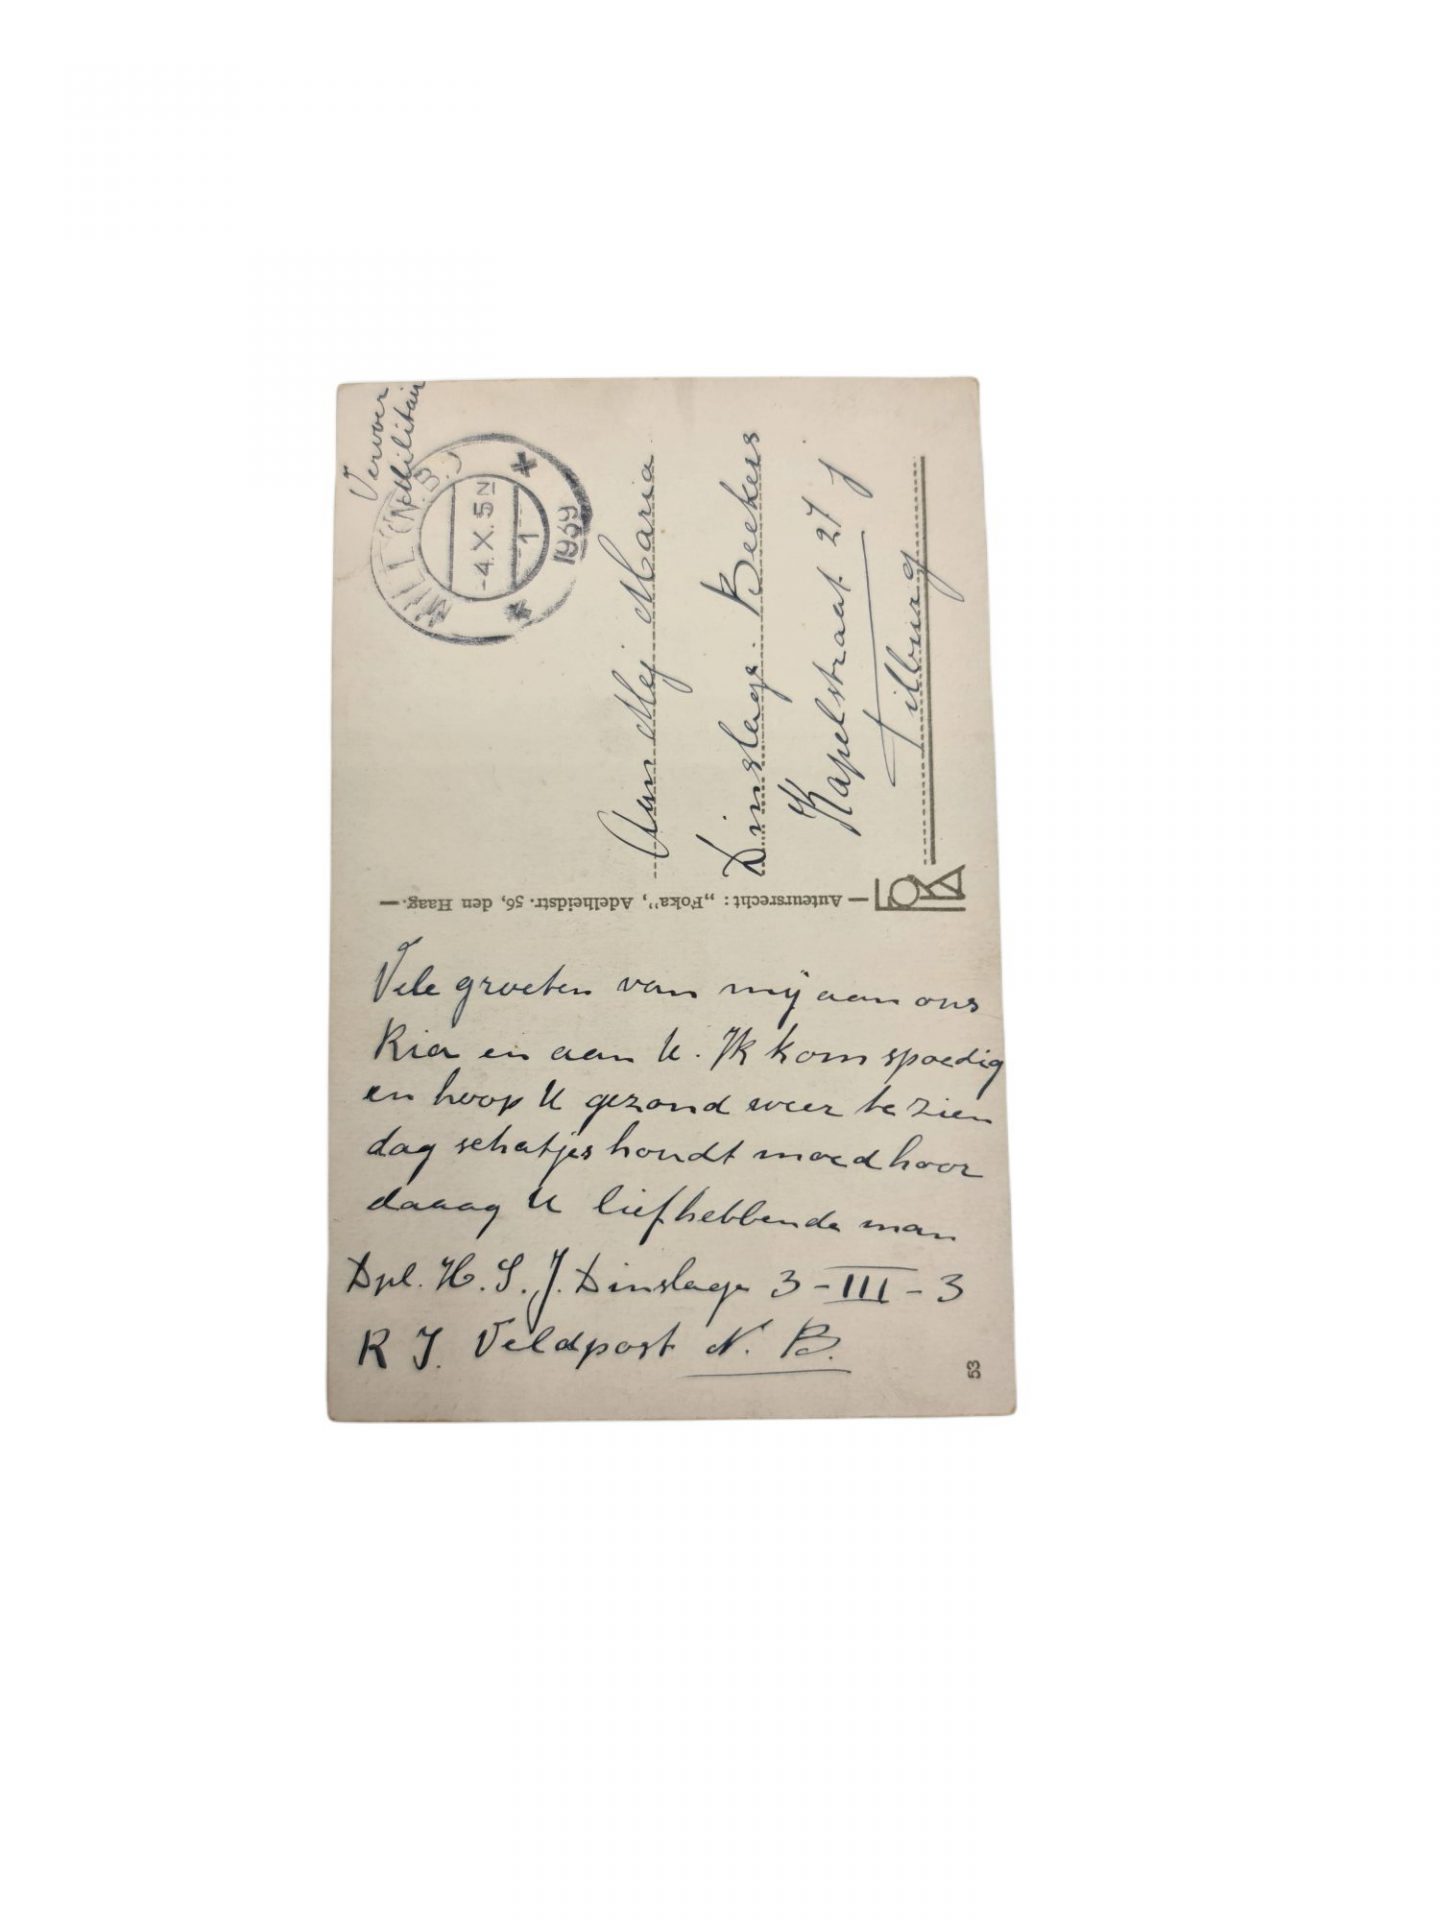 Vervoer
Militair
MILL (N.B.)
-4.X.5N
1
1939
Aan Mej Maria
Dinslage. Beekers
Kapelstraat 27 J
Tilburg
— Auteursrecht: „Foka”, Adelheidstr. 56, den Haag. —
FOKA
Vele groeten van mij aan ons
Ria en aan U. Ik kom spoedig
en hoop U gezond weer te zien
dag schatjes houdt moed hoor
daaag U liefhebbende man
Dpl. H. S. J. Dinslage 3-III-3
R J. Veldpost N. B.
53